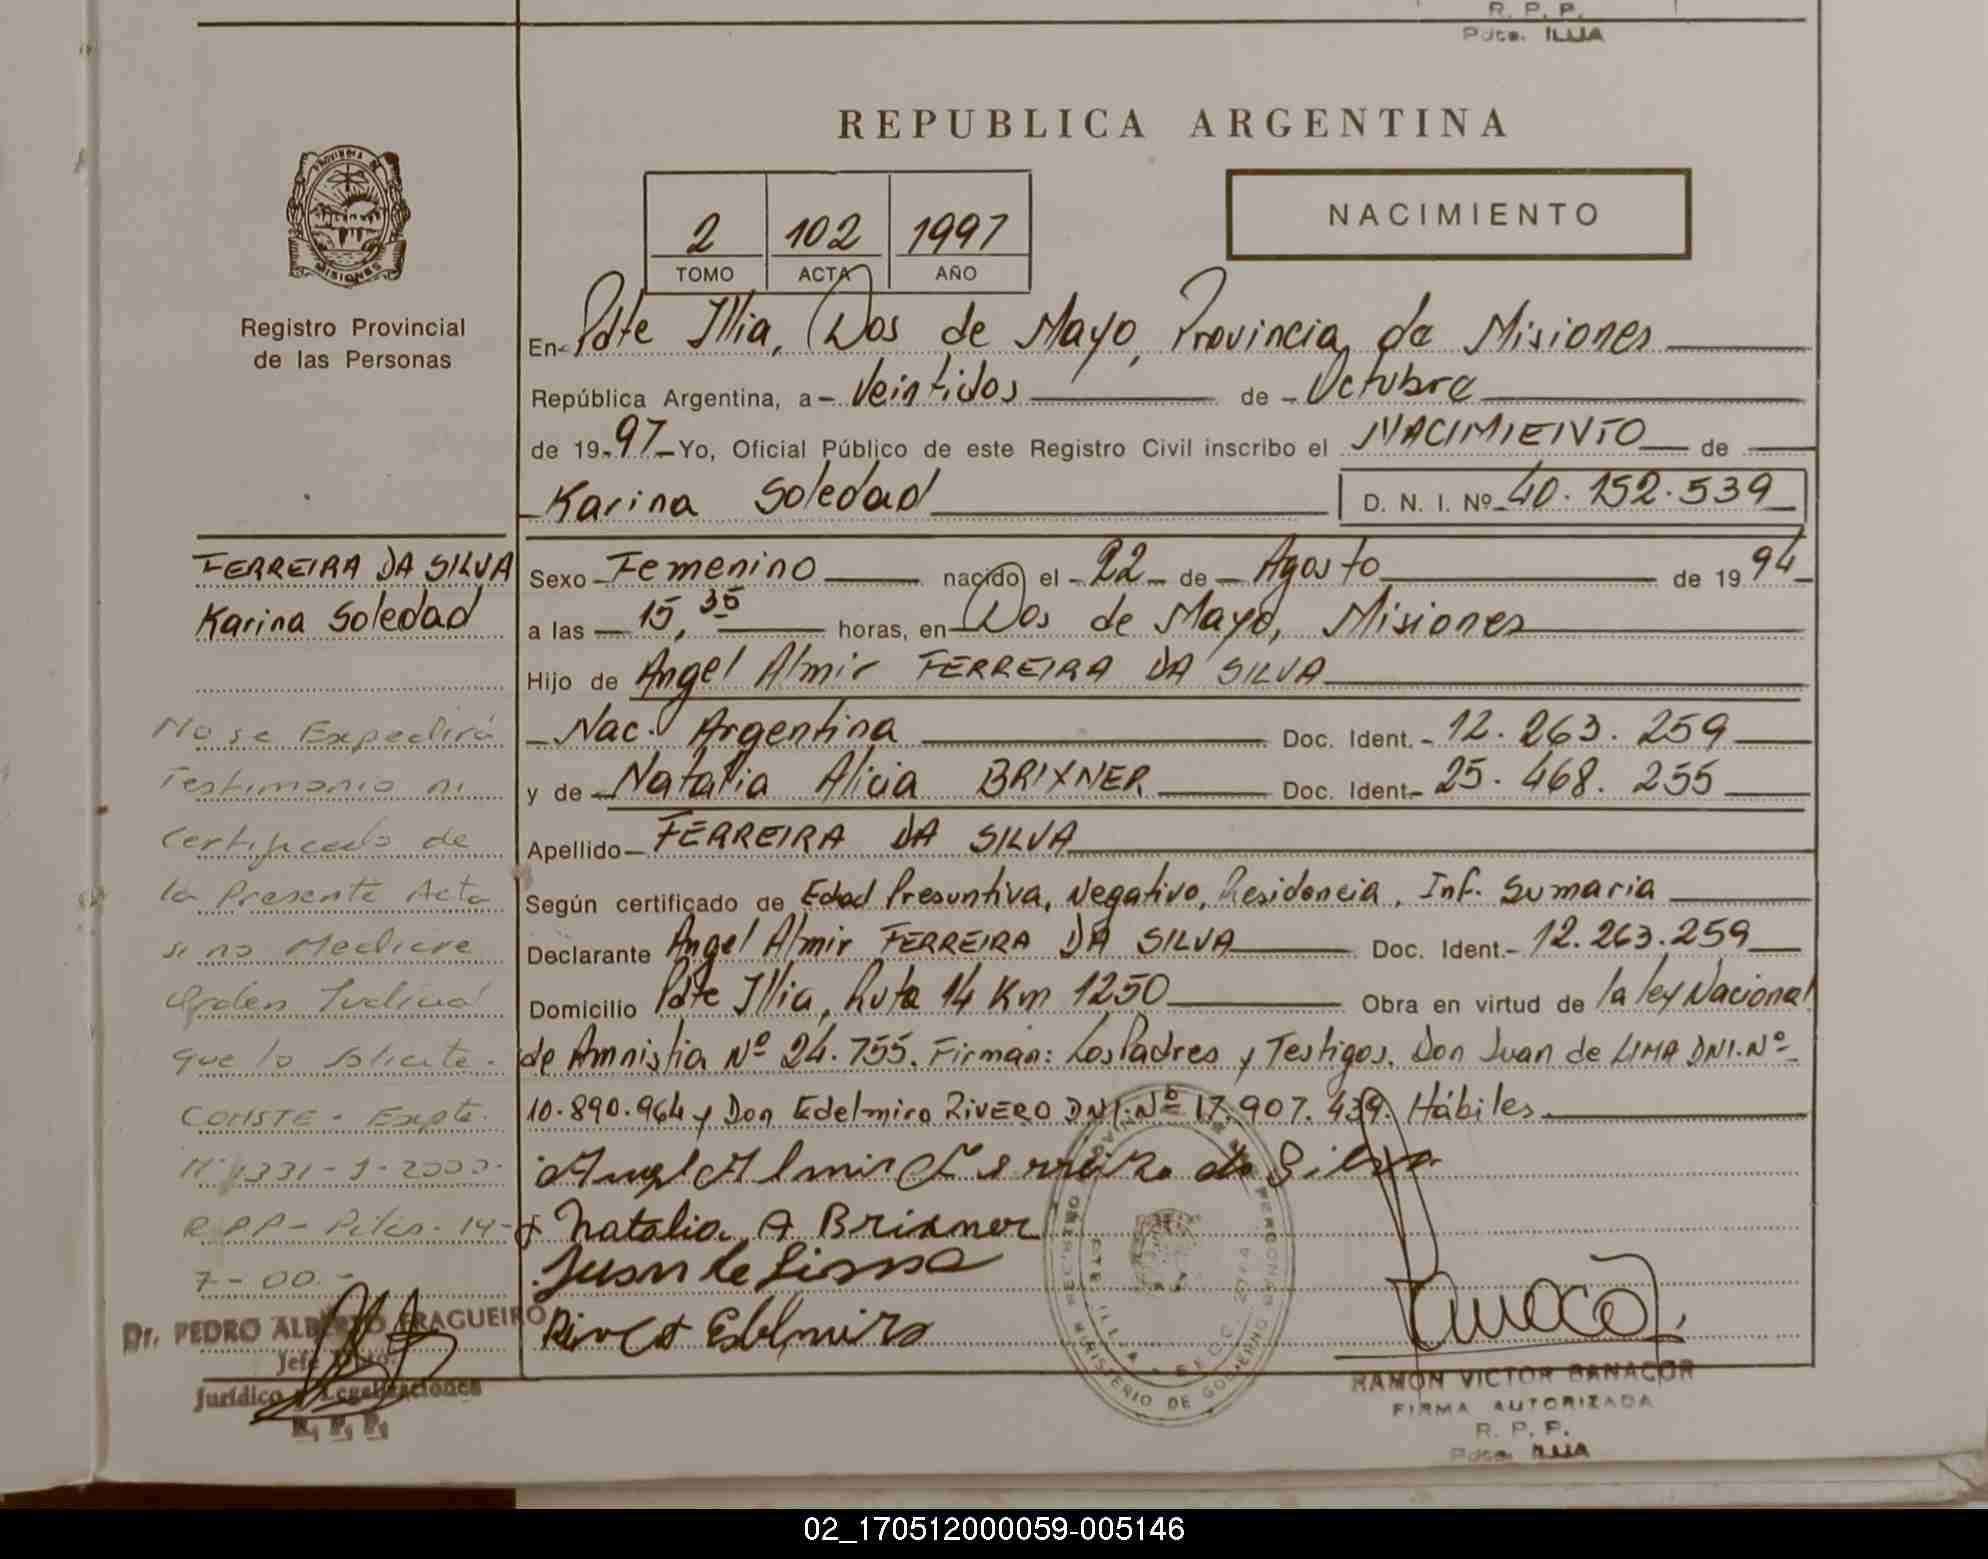 R. P. P.
Pdte. ILLIA
REPUBLICA ARGENTINA
PROVINCIA DE
MISIONES
Registro Provincial
de las Personas
2 102 1997
TOMO ACTA AÑO
NACIMIENTO
En Pdte Illia, Dos de Mayo, Provincia de Misiones
República Argentina, a Veintidos de Octubre
de 19 97 Yo, Oficial Público de este Registro Civil inscribo el NACIMIENTO de
Karina Soledad D. N. I. Nº 40.152.539
FERREIRA DA SILVA
Karina Soledad
Sexo Femenino nacido el 22 de Agosto de 19 94
a las 15,35 horas, en Dos de Mayo, Misiones
Hijo de Angel Almir FERREIRA DA SILVA
Nac. Argentina Doc. Ident. 12.263.259
y de Natalia Alicia BRIXNER Doc. Ident. 25.468.255
Apellido FERREIRA DA SILVA
Según certificado de Edad Presuntiva, Negativo, Residencia, Inf. Sumaria
Declarante Angel Almir FERREIRA DA SILVA Doc. Ident. 12.263.259
Domicilio Pdte Illia, Ruta 14 Km 1250 Obra en virtud de la ley Nacional
de Amnistia Nº 24.755. Firman: Los Padres y Testigos. Don Juan de LIMA DNI.Nº
10.890.964 y Don Edelmiro RIVERO DNI.Nº 17.907.439. Hábiles
No se Expedirá
Testimonio ni
Certificado de
la Presente Acta
si no Mediere
Orden Judicial
que lo solicite.
CONSTE - Expte.
Nº 1331-J-2000-
R.P.P- Pdas. 14-
7-00.-
Angel Almir Ferreira da Silva
Natalia A Brixner
Juan de Lima
Rivero Edelmiro
Dr. PEDRO ALBERTO FRAGUEIRO
Jefe Dpto.
Jurídico y Legalizaciones
R. P. P.
MINISTERIO DE GOBIERNO
RAMON VICTOR BANACOR
FIRMA AUTORIZADA
R. P. P.
Pdte. ILLIA
02_170512000059-005146